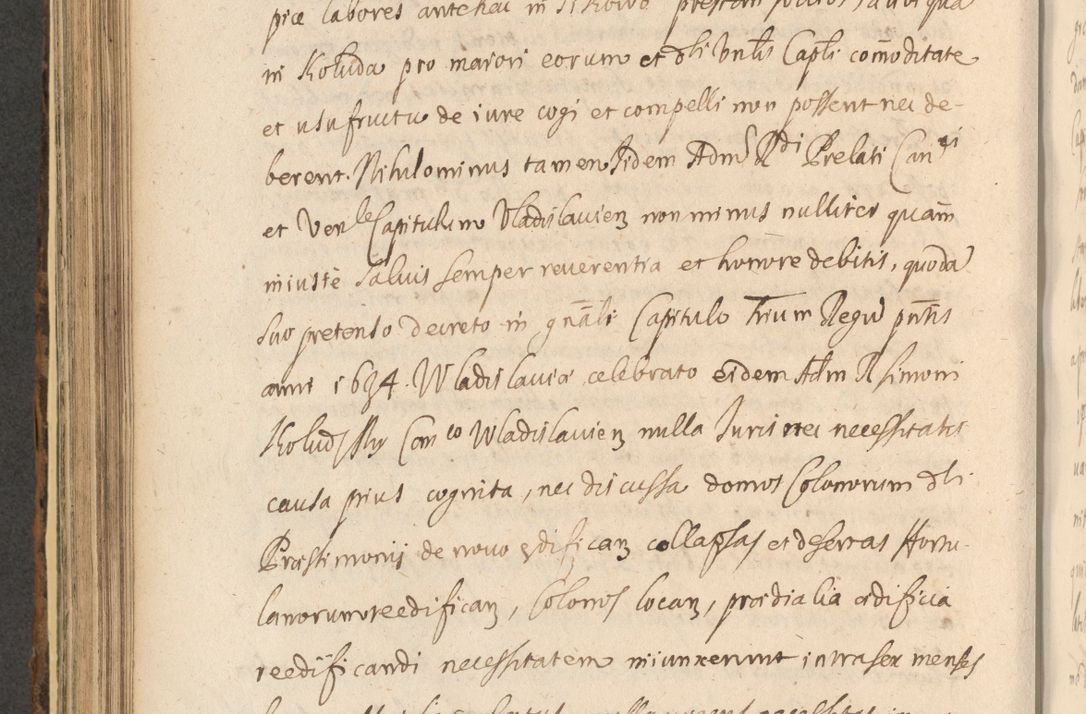 piæ labores antehac in
in Koluda pro maiori eorum et dli Vnlis Capli com̃oditate
et usufructu de iure cogi et compelli non possent nec de-
berent. Nihilominus tamen Iidem Adm Rdi Prelati Canci
et Venle Capitulum Vladislavien non minus nulliter quam̃
iniustè salvis semper reverentia et honore debitis, quodã
suo pretenso decreto in gnãli Capitulo Trium Regũ pñtis
anni 1634. Wladislaviæ celebrato eidem Adm R Simoni
Koludzky Canco Wladislavien nulla Iuris nec necessitatis
causa prius cognita, nec discussa domos Colonorum dli
Præstimonij de novo ędifican collapsas et desertas Hortu-
lanorum reedifican, Colonos locan, prædialia ædificia
reedificandi necessitatem iniunxerunt intra sex menses